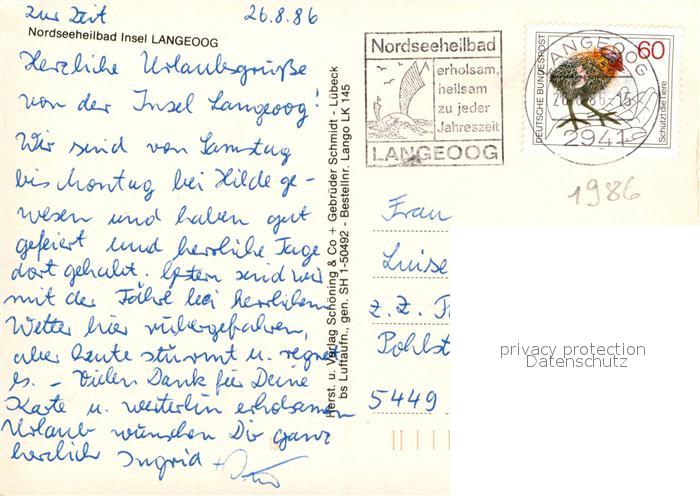 zur Zeit 26.8.86
Nordseeheilbad Insel LANGEOOG
Herzliche Urlaubsgrüße
von der Insel Langeoog!
Wir sind von Samstag
bis Montag bei Hilde ge-
wesen und haben gut
gefeiert und herrliche Tage
dort gehabt. Gestern sind wir
mit der Fähre bei herrlichem
Wetter hier rübergefahren,
aber heute stürmt u. regnet
es. – Vielen Dank für Deine
Karte u. weiterhin erholsamen
Urlaub wünschen Dir ganz
herzlich Ingrid +
Herst. u. Verlag Schöning & Co + Gebrüder Schmidt - Lübeck
bs Luftaufn., gen. SH 1-50492 - Bestellnr. Lango LK 145
Nordseeheilbad
erholsam,
heilsam
zu jeder
Jahreszeit
LANGEOOG
DEUTSCHE BUNDESPOST
60
Schützt die Tiere
LANGEOOG
2941
1986
Frau
Luise
z. Z.
Pohlst
5449
privacy protection
Datenschutz